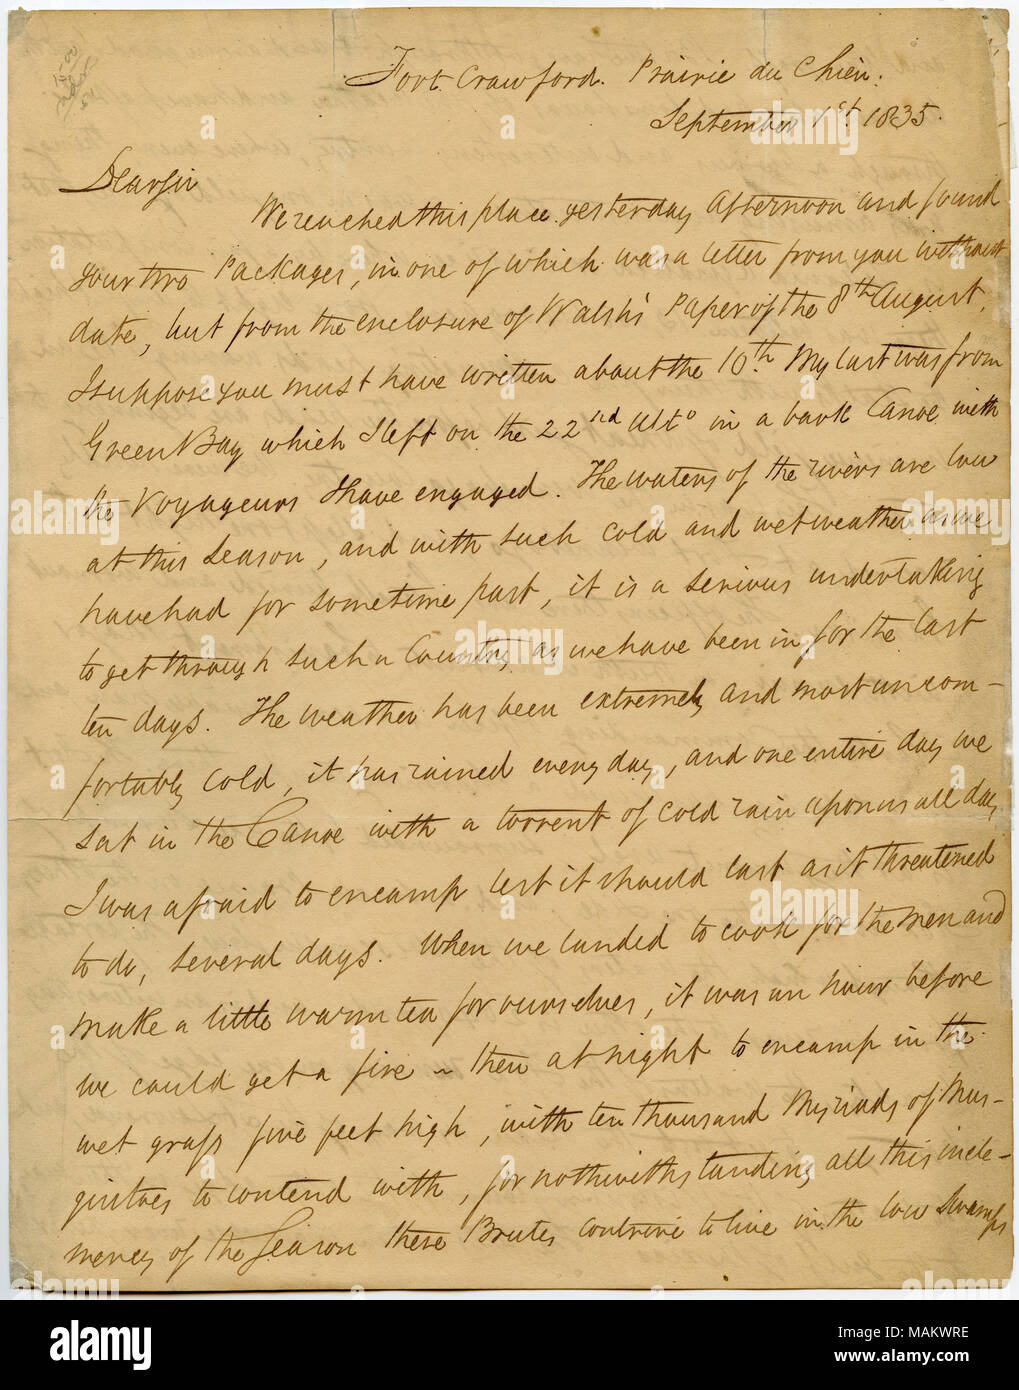 Fort Crawford. Prairie du Chien.
September 1st 1835.
Dear Sir
We reached this place yesterday afternoon and found
your two Packages, in one of which was a letter from you without
date, but from the enclosure of Walsh's Paper of the 8th August,
I suppose you must have written about the 10th My last was from
Green Bay which I left on the 22nd Ulto in a bark Canoe with
the Voyageurs I have engaged. The waters of the rivers are low
at this season, and with such cold and wet weather as we
have had for sometime past, it is a serious undertaking
to get through such a Country as we have been in for the last
ten days. The weather has been extremely and most uncom-
fortably cold, it has rained every day, and one entire day we
sat in the Canoe with a torrent of cold rain upon us all day,
I was afraid to encamp lest it should last as it threatened
to do, several days. When we landed to cook for the men and
make a little warm tea for ourselves, it was an hour before
we could get a fire ~ then at night to encamp in the
wet grass five feet high, with ten thousand Myriads of Mus-
quitoes to contend with, for notwithstanding all this incle-
mency of the Season these Brutes contrive to live in the low Swamps
alamy
Image ID: MAKWRE
www.alamy.com